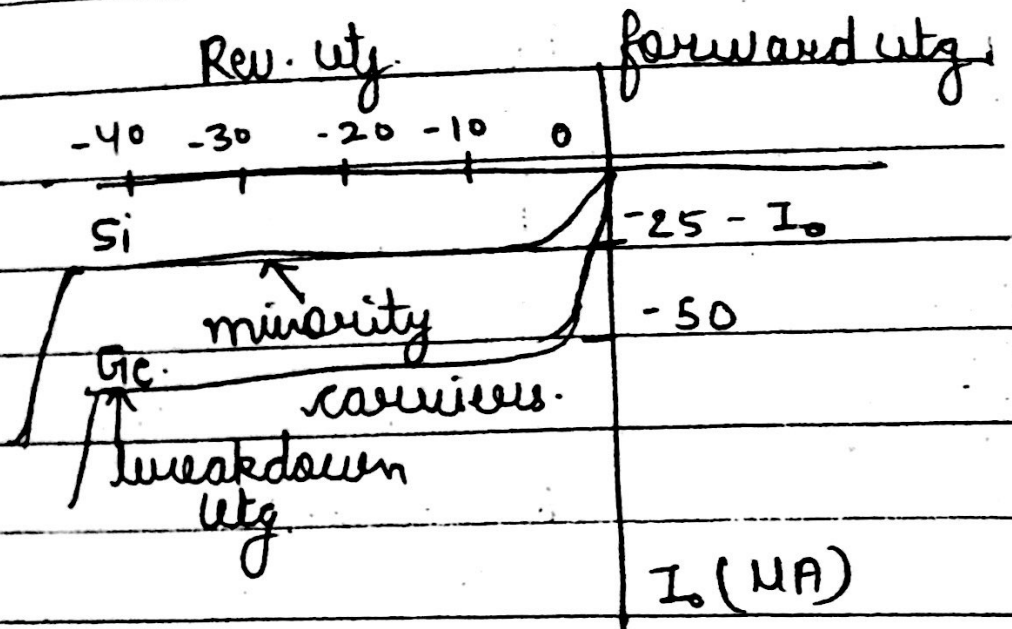 Rev. vtg. forward vtg.
-40 -30 -20 -10 0
Si -25 - I₀
minority -50
Ge.
carriers.
breakdown
vtg.
I₀ (μA)